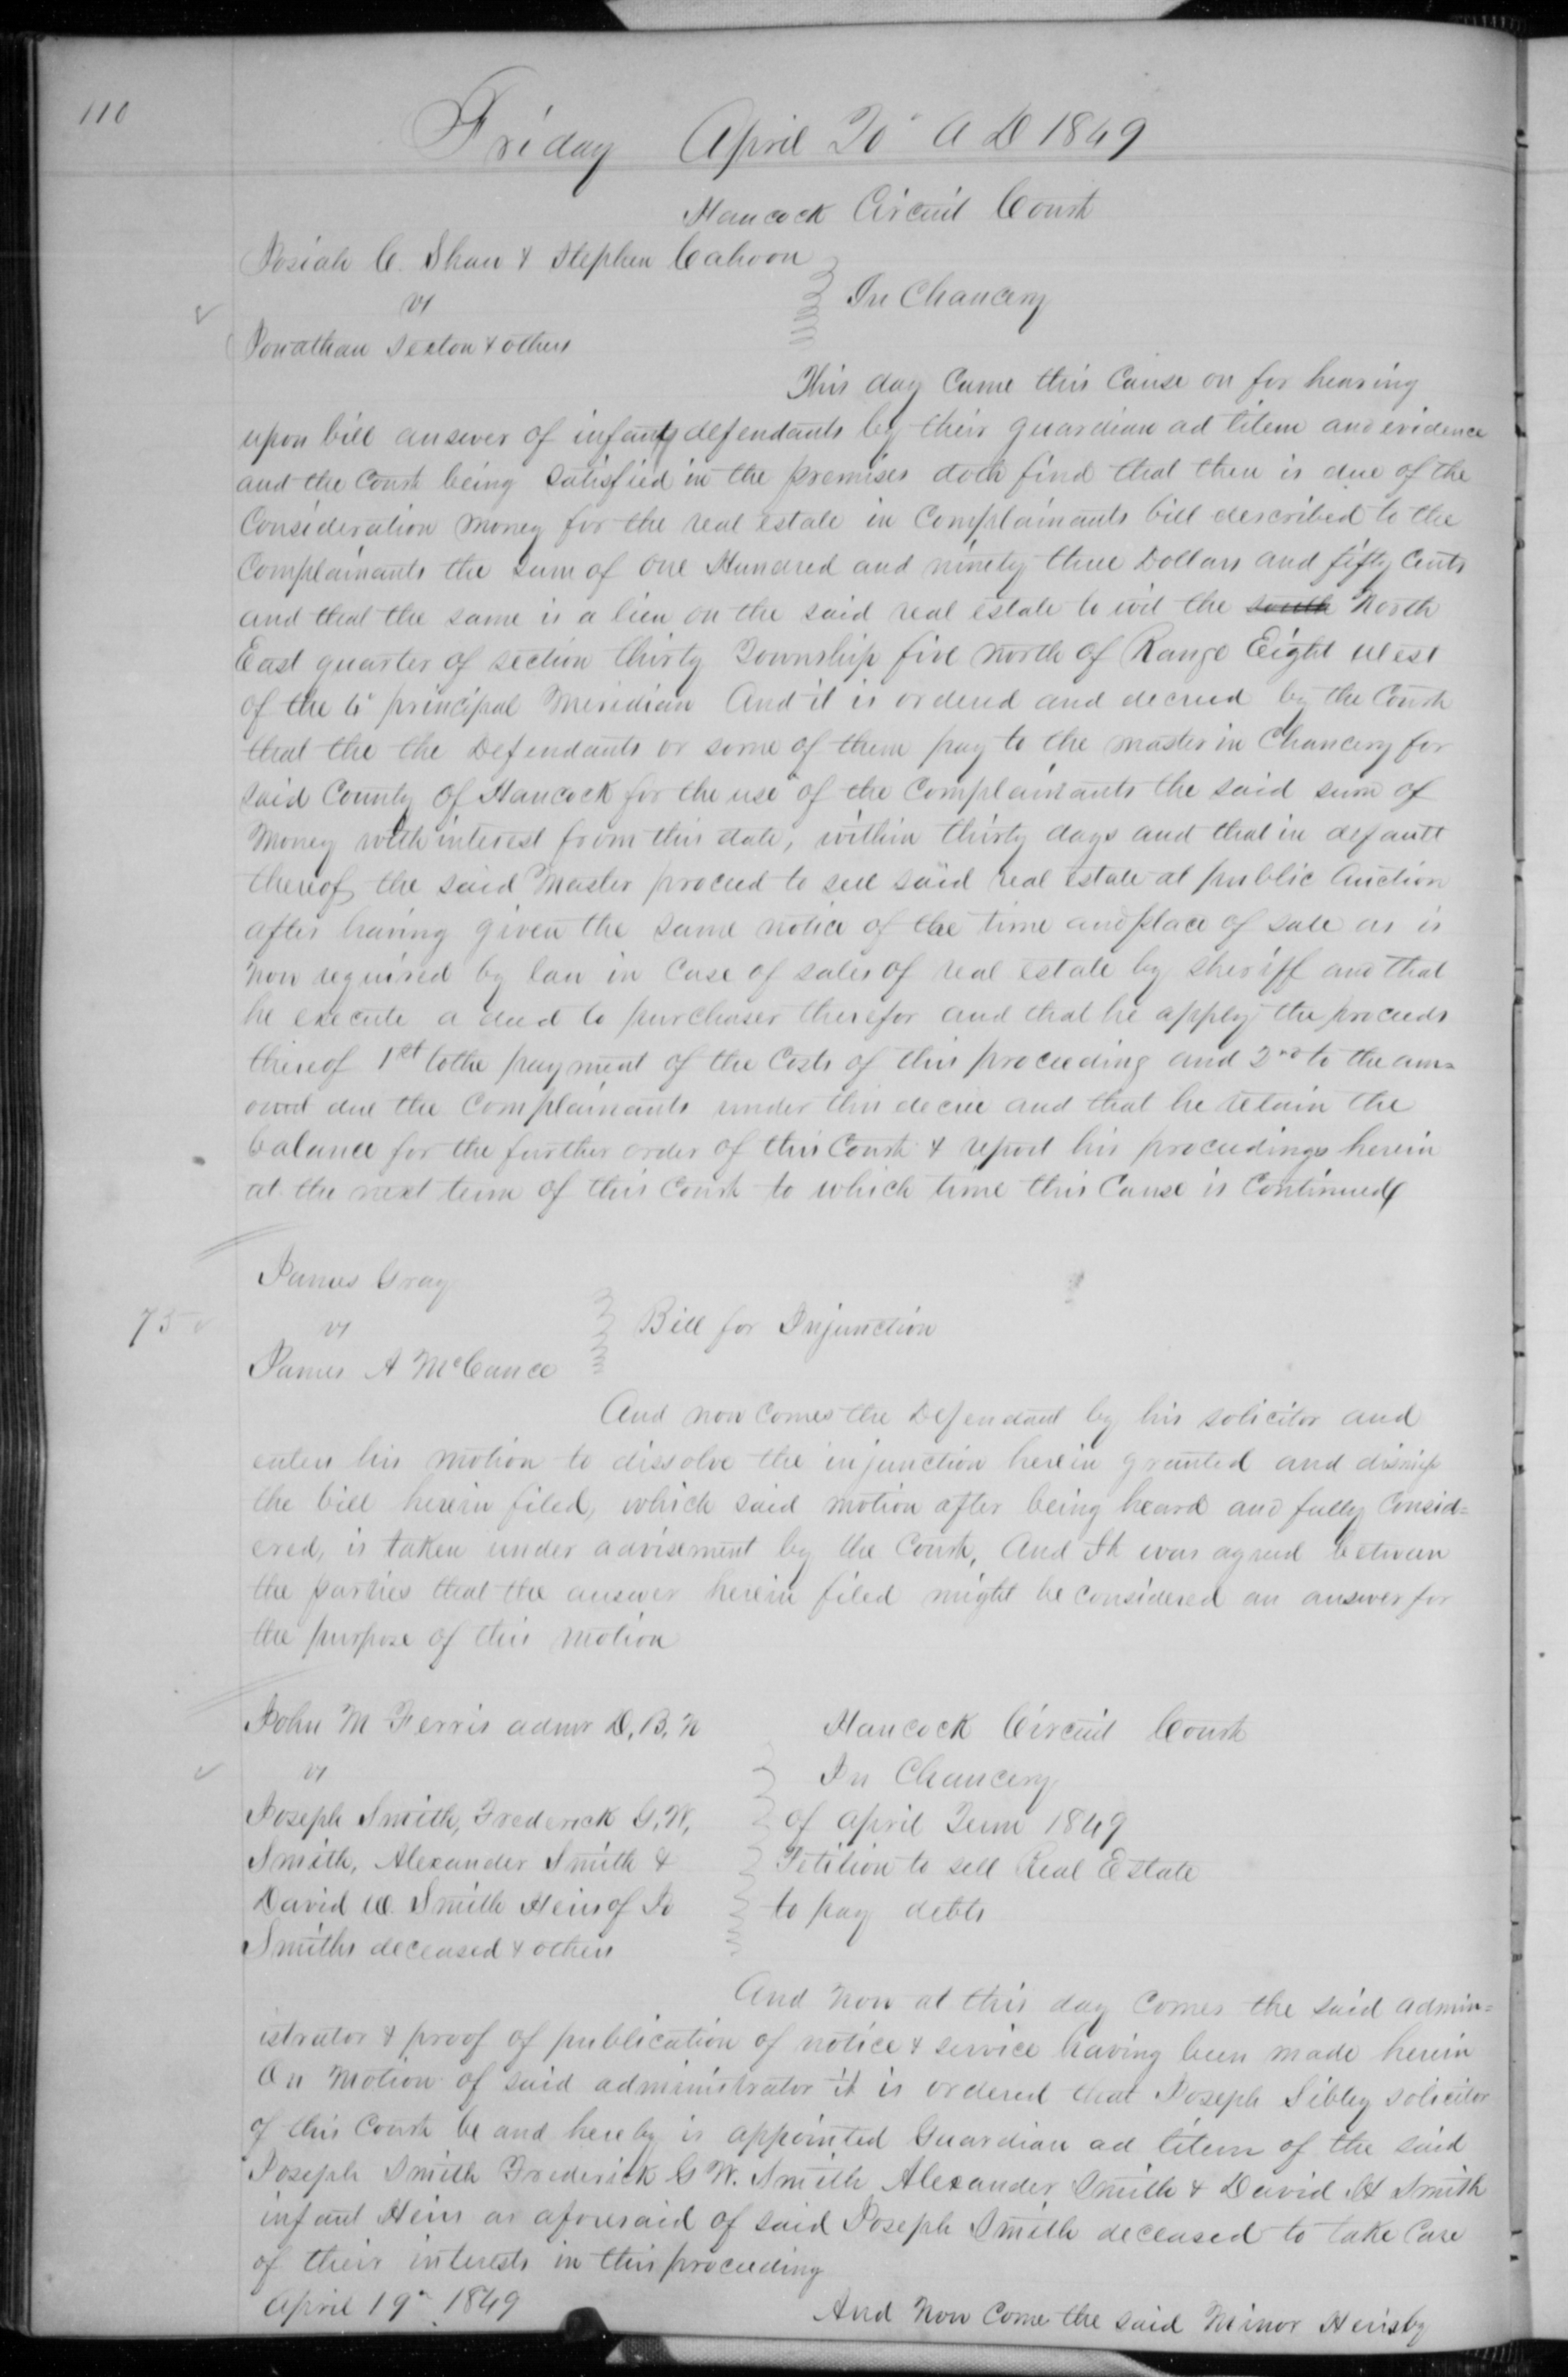 110
Friday April 20 A D 1849
Hancock Circuit Court
Josiah C. Shaw & Stephen Cahoon
vs
In Chancery
Jonathan Sexton & others
This day came this Cause on for hearing
upon bill answer of infants defendants by their guardian ad litem and evidence
and the Court being Satisfied in the premises doth find that there is due of the
Consideration money for the real estate in Complainants bill described to the
Complainants the sum of one Hundred and ninety three Dollars and fifty Cents
and that the same is a lien on the said real estate to wit the south North
East quarter of section thirty Township five north of Range Eight West
of the 4 principal Meridian And it is ordered and decreed by the Court
that the the Defendants or some of them pay to the master in Chancery for
said County of Hancock for the use of the Complainants the said sum of
Money with interest from this date, within thirty days and that in default
thereof the said Master proceed to sell said real estate at public Auction
after having given the same notice of the time and place of sale as is
now required by law in Case of sales of real estate by sheriff and that
he execute a deed to purchaser therefor and that he apply the proceeds
thereof 1st to the payment of the Costs of this proceeding and 2nd to the am=
ount due the Complainants under this decree and that he retain the
balance for the further order of this Court & report his proceedings herein
at the next term of this Court to which time this Cause is Continued
James Gray
75
vs
Bill for Injunction
James A McCance
And now comes the Defendant by his solicitor and
enters his motion to dissolve the injunction herein granted and dismiss
the bill herein filed, which said motion after being heard and fully Consid=
ered, is taken under advisement by the Court, And It was agreed between
the parties that the answer herein filed might be considered an answer for
the purpose of this motion
John M Ferris admr D. B. N
Hancock Circuit Court
vs
In Chancery
Joseph Smith, Frederick G. W.
of April Term 1849
Smith, Alexander Smith &
Petition to sell Real Estate
David H. Smith Heirs of Jo
to pay debts
Smiths deceased & others
And now at this day comes the said admin=
istrator & proof of publication of notice & service having been made herein
On motion of said administrator it is ordered that Joseph Sibley solicitor
of this Court be and hereby is appointed Guardian ad litem of the said
Joseph Smith Frederick G W. Smith Alexander Smith & David H Smith
infant Heirs as aforesaid of said Joseph Smith deceased to take Care
of their interests in this proceeding
April 19 1849
And now come the said Minor Heirs by